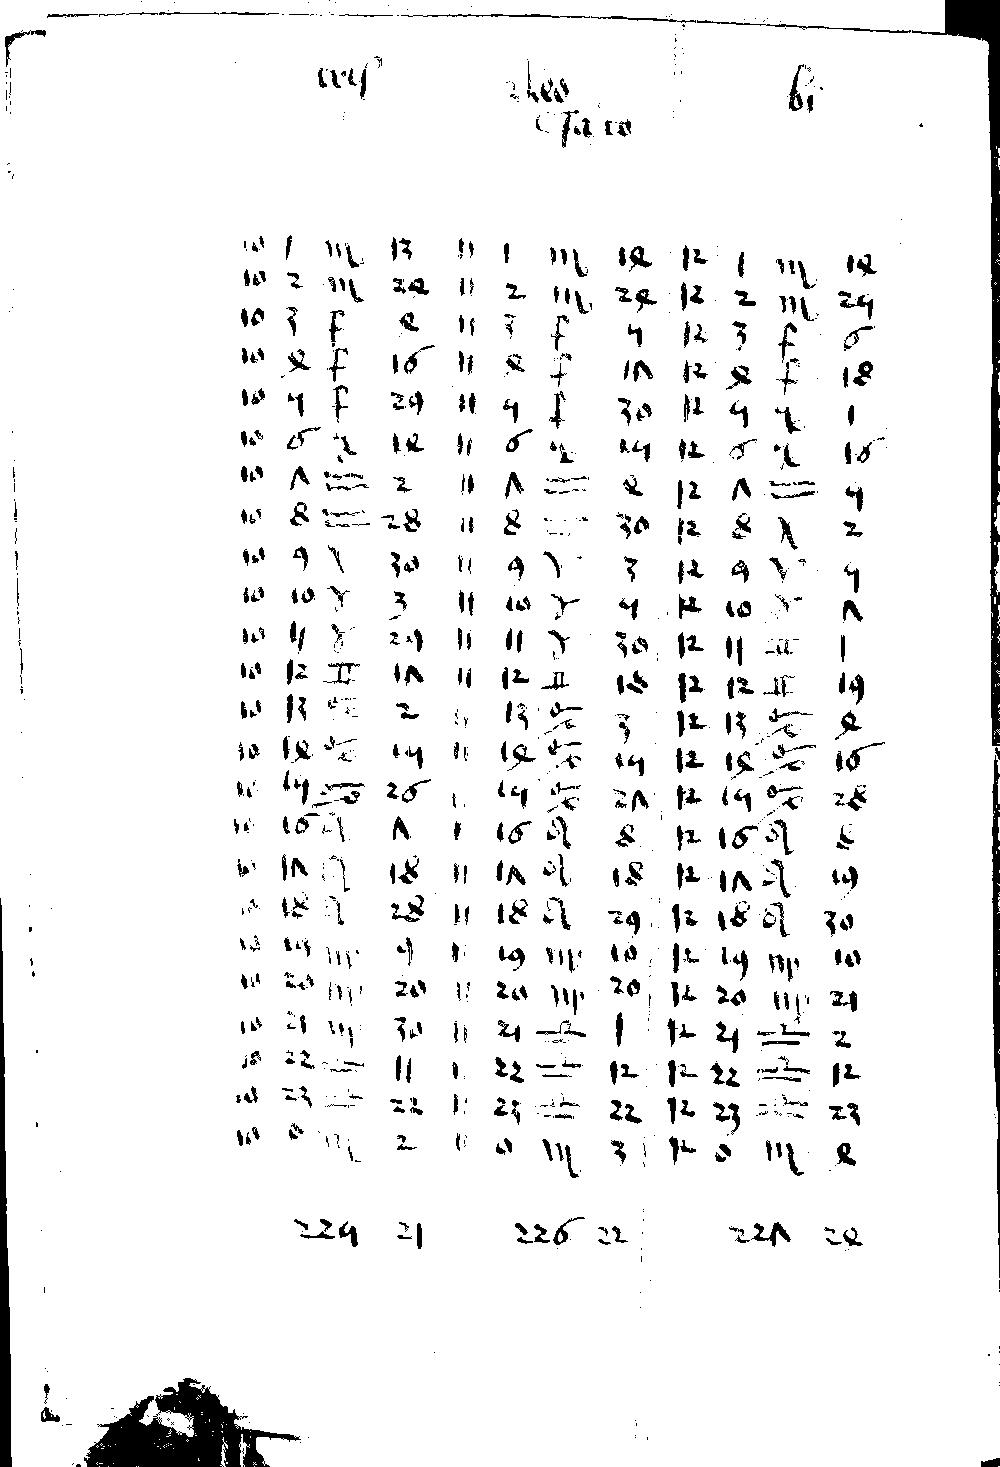 bi
10 1 ♏ 13 11 1 ♏ 14 12 1 ♏ 14
10 2 ♏ 24 11 2 ♏ 24 12 2 ♏ 25
10 3 ♐ 4 11 3 ♐ 5 12 3 ♐ 6
10 4 ♐ 16 11 4 ♐ 17 12 4 ♐ 18
10 5 ♐ 29 11 5 ♐ 30 12 5 ♑ 1
10 6 ♑ 14 11 6 ♑ 15 12 6 ♑ 16
10 7 ♒ 2 11 7 ♒ 4 12 7 ♒ 5
10 8 ♒ 28 11 8 ♒ 30 12 8 ♓ 2
10 9 ♓ 30 11 9 ♈ 3 12 9 ♈ 5
10 10 ♉ 3 11 10 ♉ 5 12 10 ♉ 7
10 11 ♉ 29 11 11 ♉ 30 12 11 ♊ 1
10 12 ♊ 17 11 12 ♊ 18 12 12 ♊ 19
10 13 ♋ 2 11 13 ♋ 3 12 13 ♋ 4
10 14 ♋ 15 11 14 ♋ 15 12 14 ♋ 16
10 15 ♋ 26 11 15 ♋ 27 12 15 ♋ 28
10 16 ♌ 7 11 16 ♌ 8 12 16 ♌ 8
10 17 ♌ 18 11 17 ♌ 18 12 17 ♌ 19
10 18 ♌ 28 11 18 ♌ 29 12 18 ♌ 30
10 19 ♍ 9 11 19 ♍ 10 12 19 ♍ 10
10 20 ♍ 20 11 20 ♍ 20 12 20 ♍ 21
10 21 ♍ 30 11 21 ♎ 1 12 21 ♎ 2
10 22 ♎ 11 11 22 ♎ 12 12 22 ♎ 12
10 23 ♎ 22 11 23 ♎ 22 12 23 ♎ 23
10 0 ♏ 2 11 0 ♏ 3 12 0 ♏ 4
225 21 226 22 227 24